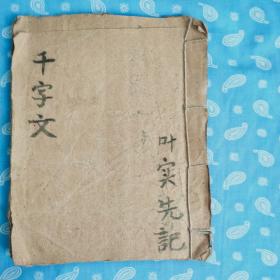 千字文
叶实先記